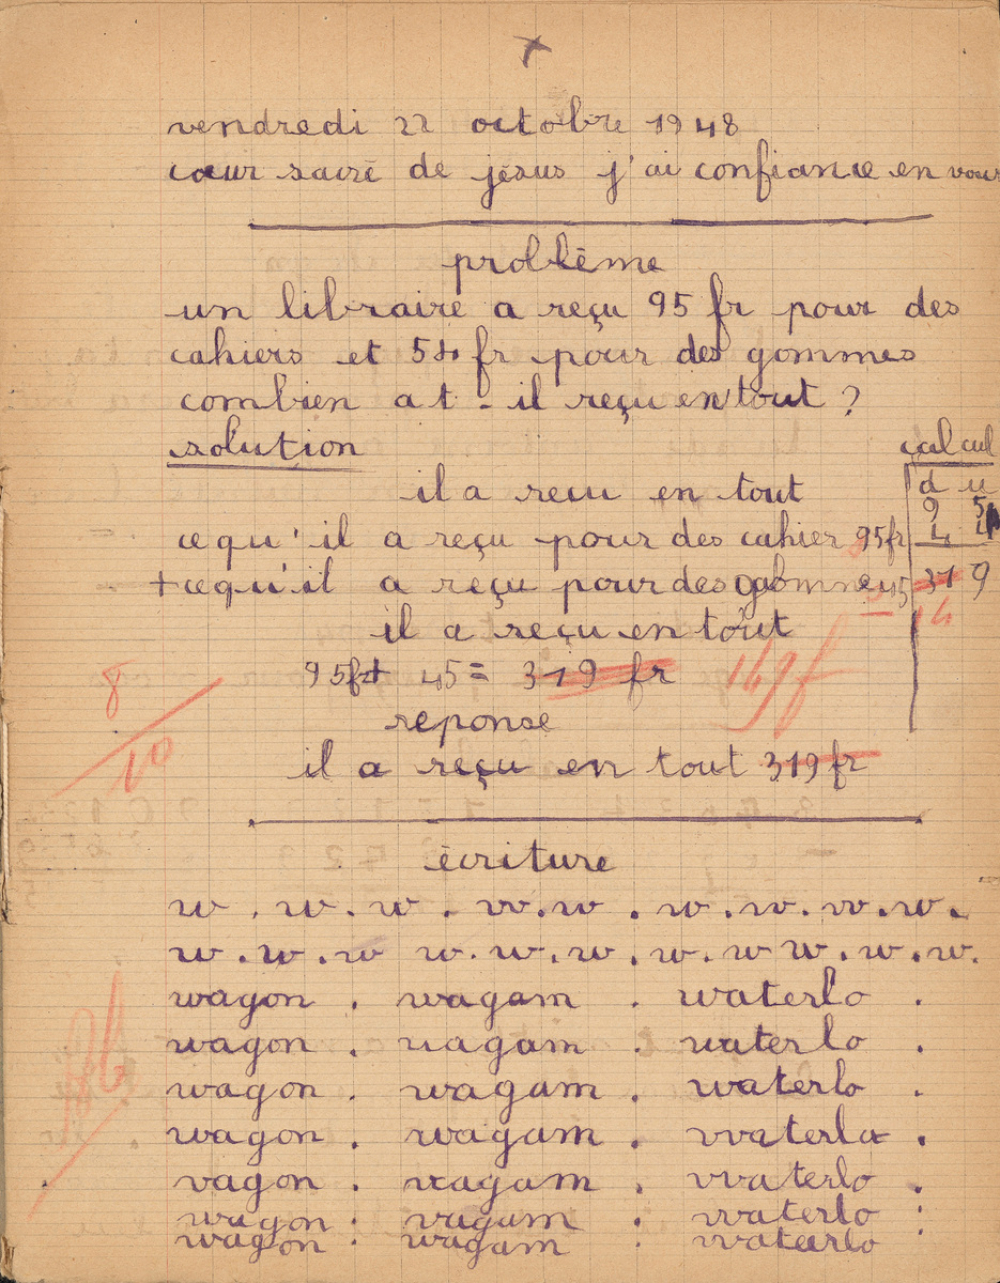 x
vendredi 22 octobre 1948
cœur sacré de jésus j'ai confiance en vous
problème
un libraire a reçu 95 fr pour des
cahiers et 54 fr pour des gommes
combien a t-il reçu en tout ?
solution
calcul
d u
9 5
il a recu en tout
ce qu'il a reçu pour des cahier 95fr
+ce qu'il a reçu pour des 45
319
14
il a reçu en tout
95fr+ 45 = 319 fr 149f
8/10
reponse
il a reçu en tout 319 fr
écriture
w . w . w . w . w . w . w . w . w .
w . w . w w . w . w . w . w w . w . w .
wagon . wagam . waterlo .
wagon . uagam . waterlo .
wagon . wagam . waterlo .
wagon . wagam . waterla .
vagon . wagam . waterlo .
wagon : vagam : waterlo :
wagon . wagam . waterlo